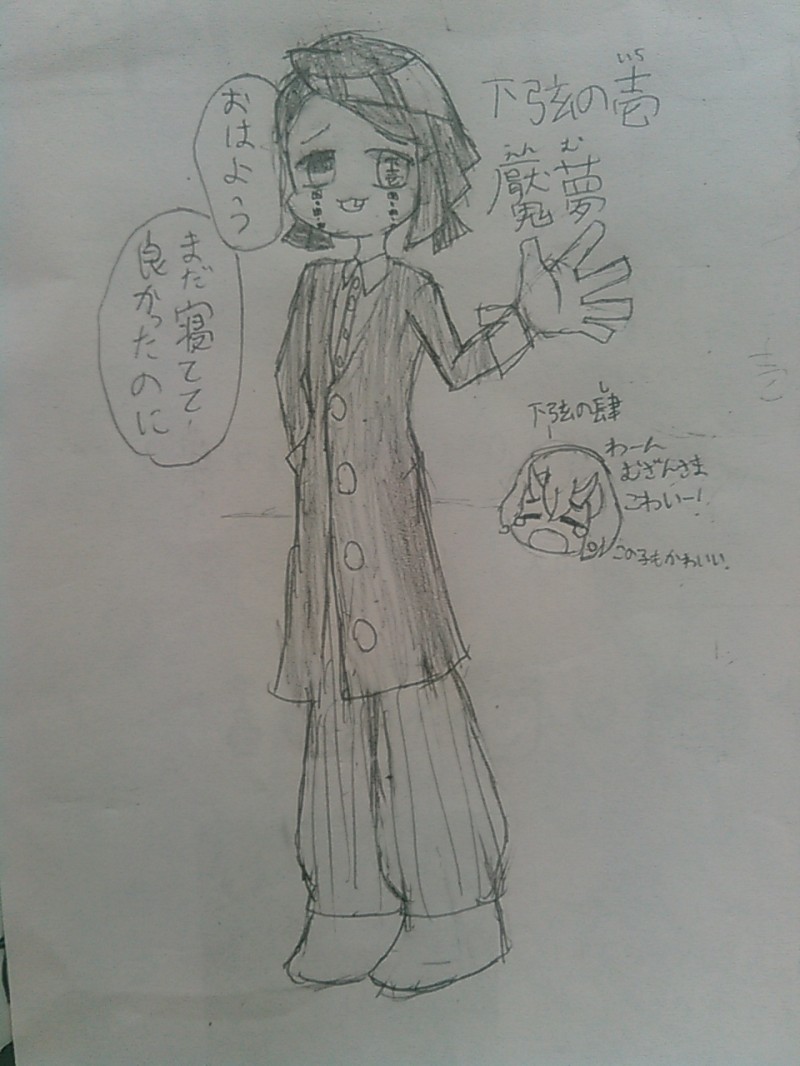 下弦の壱
いち
魘夢
えん む
おはよう
まだ寝てて
良かったのに
下弦の肆
し
わーん
むざんさま
こわいー!
この子もかわいい。